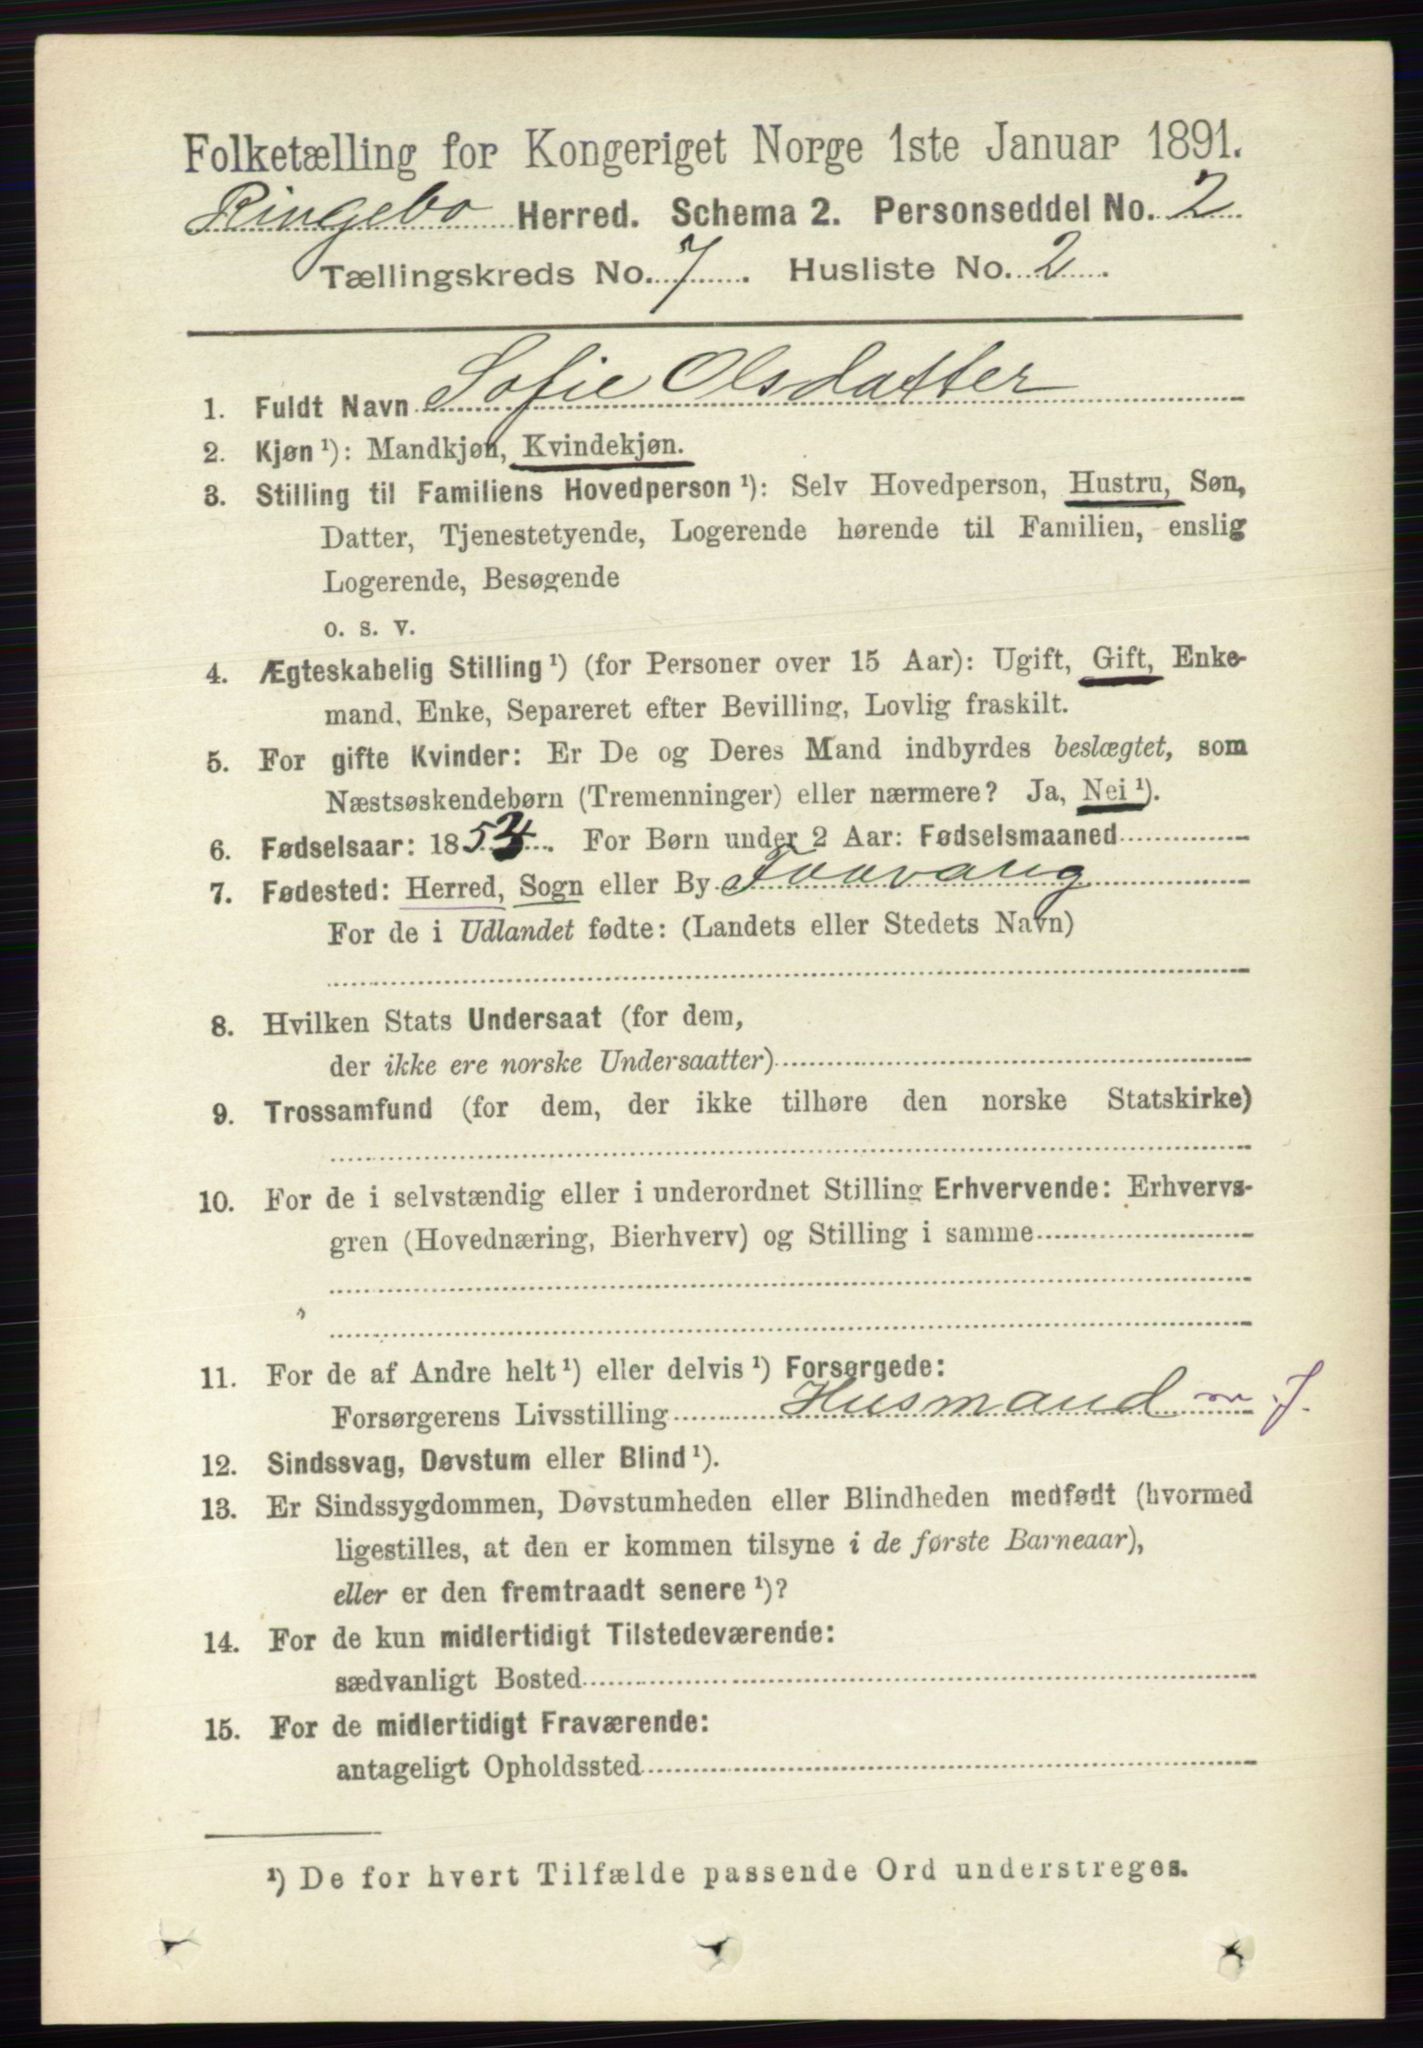 Folketælling for Kongeriget Norge 1ste Januar 1891.
Ringebo Herred. Schema 2. Personseddel No. 2
Tællingskreds No. 7. Husliste No. 2.
1. Fuldt Navn Sofie Olsdatter
2. Kjøn ¹): Mandkjøn, Kvindekjøn.
3. Stilling til Familiens Hovedperson ¹): Selv Hovedperson, Hustru, Søn,
Datter, Tjenestetyende, Logerende hørende til Familien, enslig
Logerende, Besøgende
o. s. v.
4. Ægteskabelig Stilling ¹) (for Personer over 15 Aar): Ugift, Gift, Enke-
mand, Enke, Separeret efter Bevilling, Lovlig fraskilt.
5. For gifte Kvinder: Er De og Deres Mand indbyrdes beslægtet, som
Næstsøskendebørn (Tremenninger) eller nærmere? Ja, Nei ¹).
6. Fødselsaar: 185 . For Børn under 2 Aar: Fødselsmaaned
7. Fødested: Herred, Sogn eller By
For de i Udlandet fødte: (Landets eller Stedets Navn)
8. Hvilken Stats Undersaat (for dem,
der ikke ere norske Undersaatter)
9. Trossamfund (for dem, der ikke tilhøre den norske Statskirke)
10. For de i selvstændig eller i underordnet Stilling Erhvervende: Erhvervs-
gren (Hovednæring, Bierhverv) og Stilling i samme
11. For de af Andre helt ¹) eller delvis ¹) Forsørgede:
Forsørgerens Livsstilling Husmand m. J.
12. Sindssvag, Døvstum eller Blind ¹).
13. Er Sindssygdommen, Døvstumheden eller Blindheden medfødt (hvormed
ligestilles, at den er kommen tilsyne i de første Barneaar),
eller er den fremtraadt senere ¹)?
14. For de kun midlertidigt Tilstedeværende:
sædvanligt Bosted
15. For de midlertidigt Fraværende:
antageligt Opholdssted
¹) De for hvert Tilfælde passende Ord understreges.